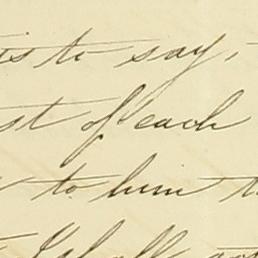 is to say,
st of each
to him
shall